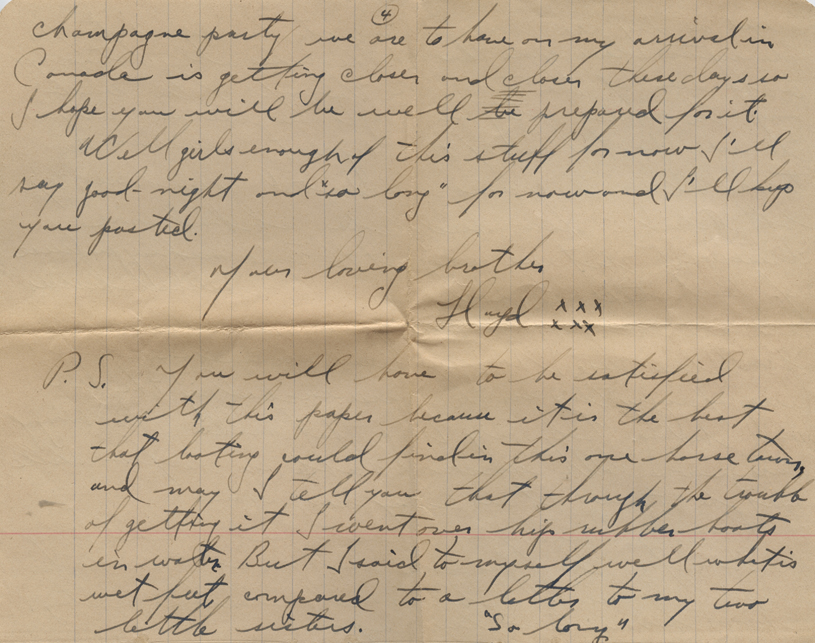 4
champagne party we are to have on my arrival in
Canada is getting closer and closer these days so
I hope you will be well be prepared for it.
Well girls enough of this stuff for now I'll
say good-night and "so long" for now and I'll keep
you posted.
Your loving brother
Lloyd x x x
x x x
P. S. You will have to be satisfied
with this paper because it is the best
that looting could find in this one horse town,
and may I tell you that through the trouble
of getting it I went over hip rubber boots
in water. But I said to myself well what is
wet feet compared to a letter to my two
little sisters. "So long"